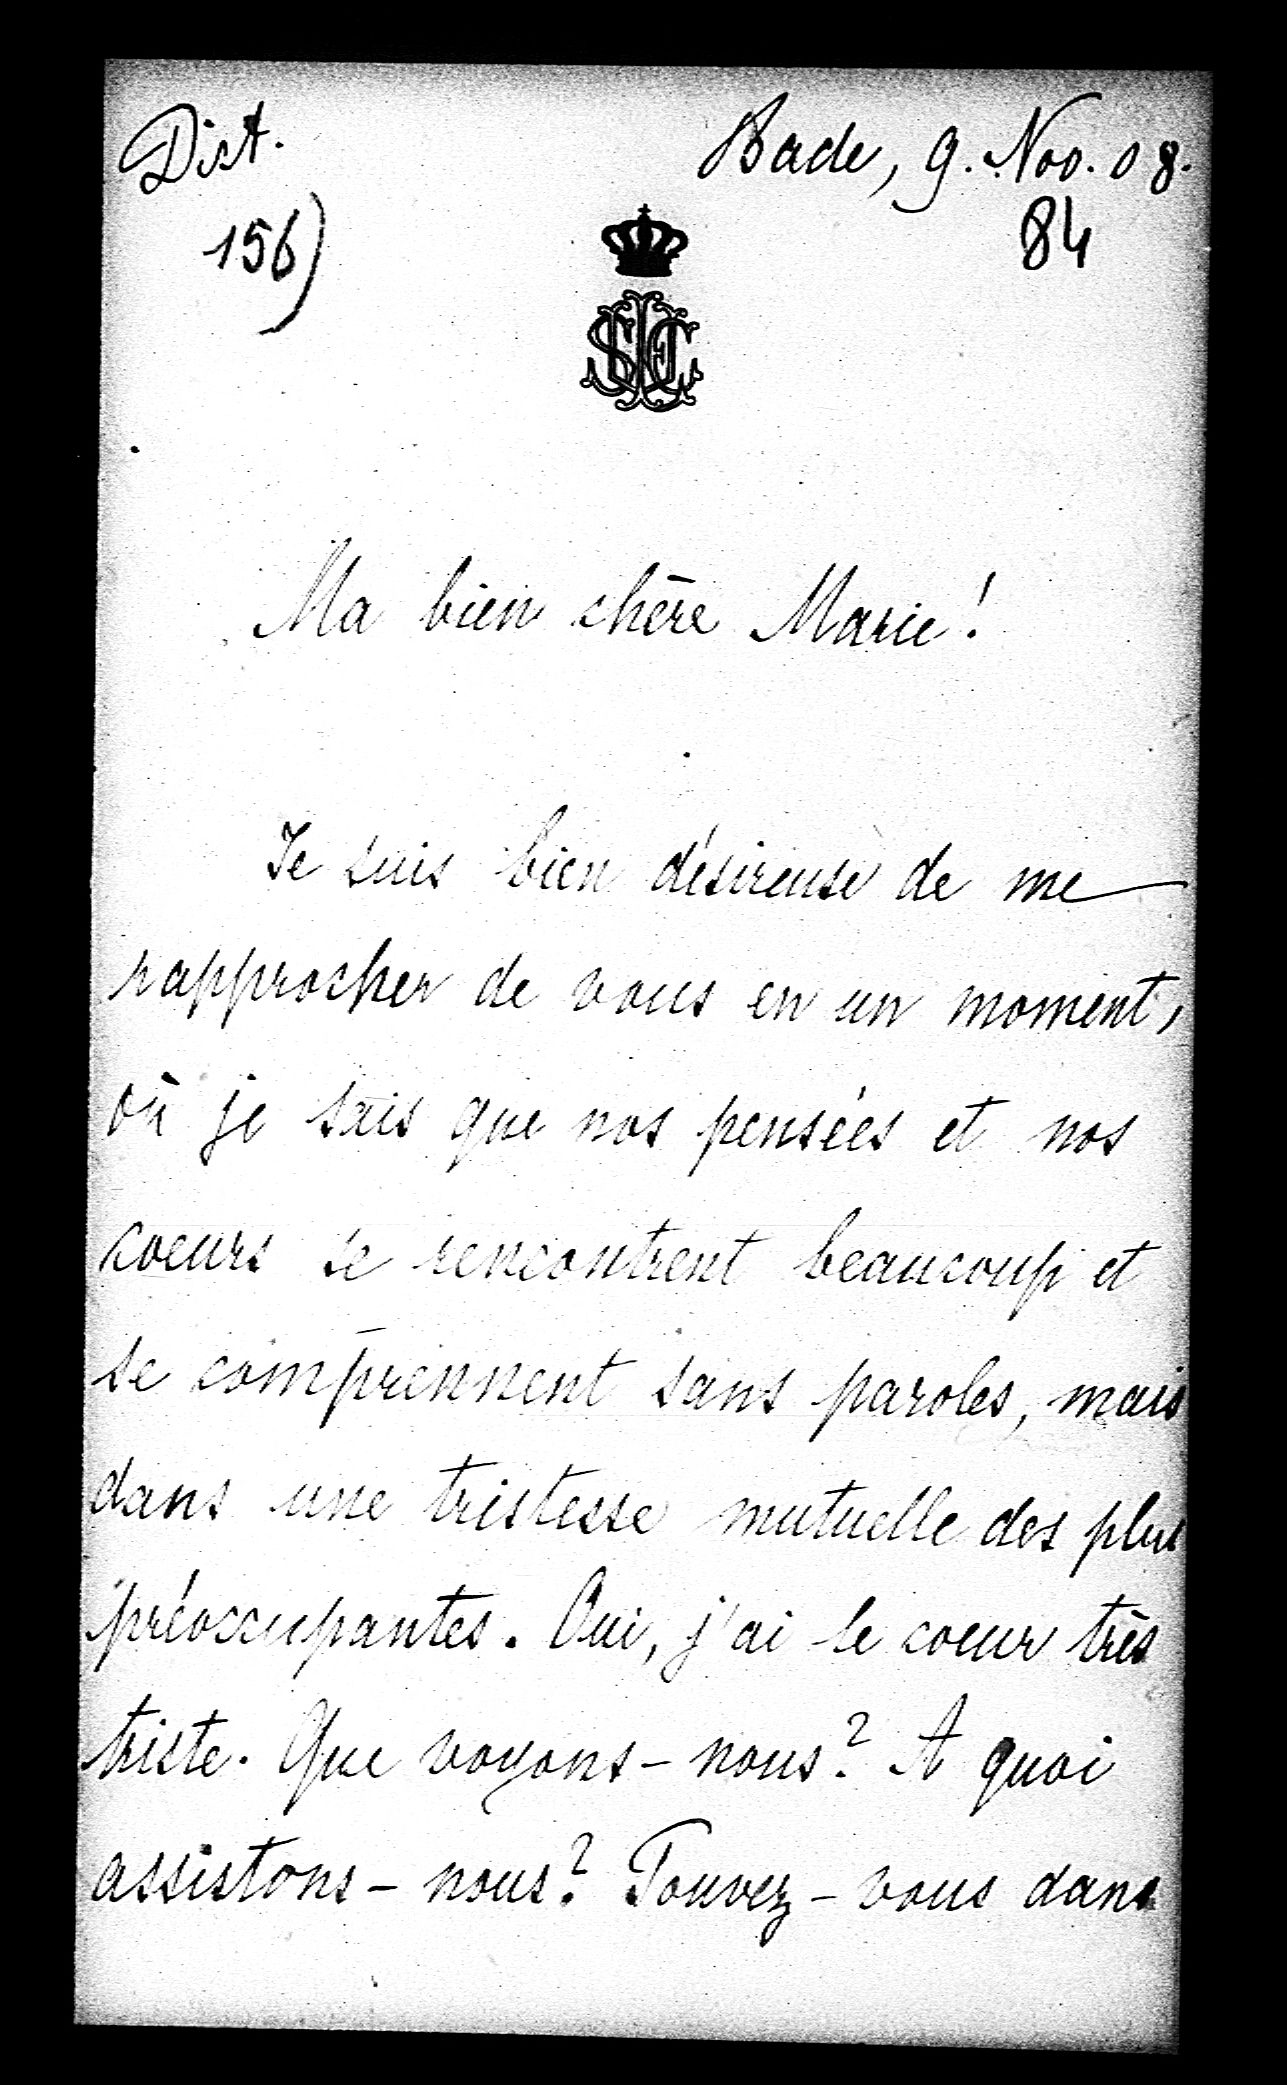 Dict.
Bade, 9. Nov. 08.
156)
84
Ma bien chère Marie!
Je suis bien désireuse de me
rapprocher de vous en un moment,
où je sais que nos pensées et nos
coeurs se rencontrent beaucoup et
se comprennent sans paroles, mais
dans une tristesse mutuelle des plus
préoccupantes. Oui, j'ai le coeur très
triste. Que voyons-nous? A quoi
assistons-nous? Pouvez-vous dans